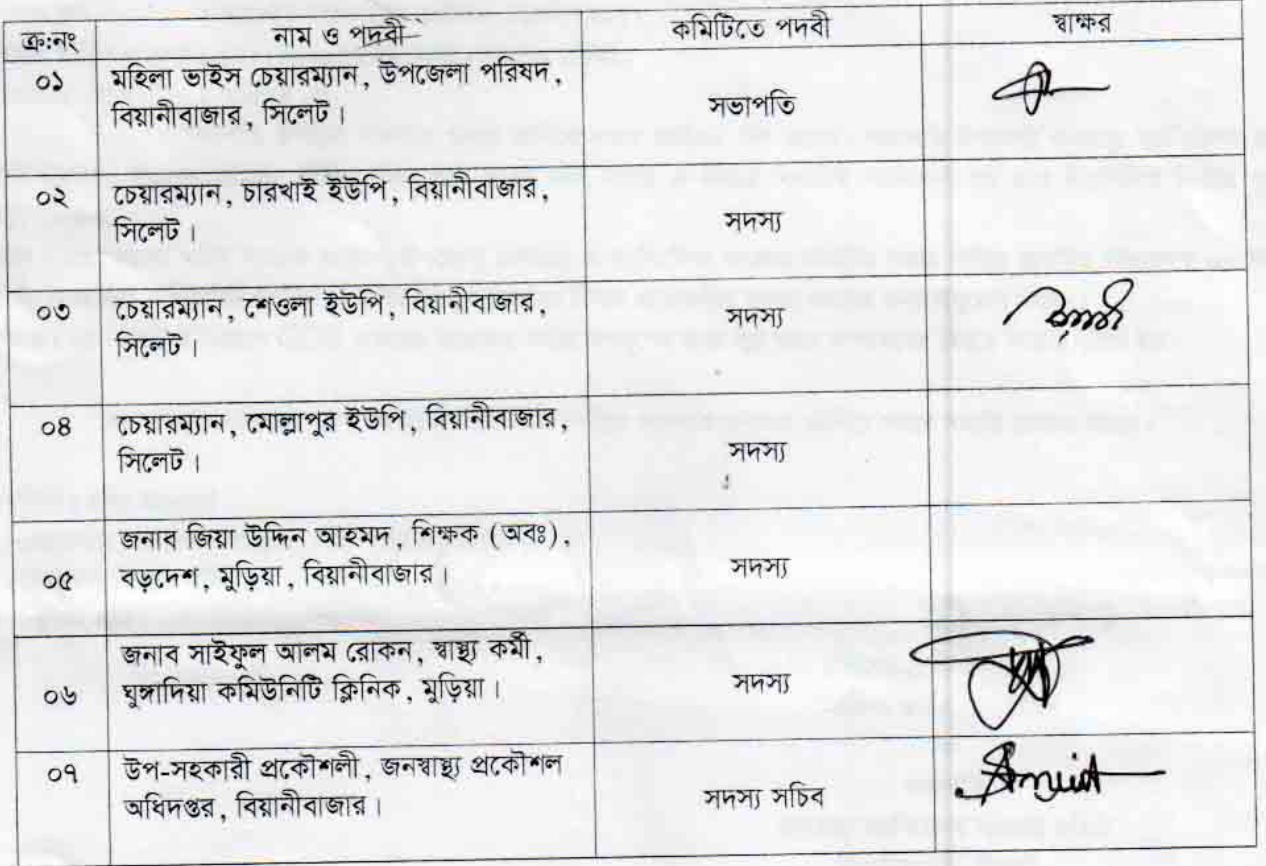 ক্র:নং নাম ও পদবী কমিটিতে পদবী স্বাক্ষর
০১ মহিলা ভাইস চেয়ারম্যান, উপজেলা পরিষদ,
বিয়ানীবাজার, সিলেট। সভাপতি
০২ চেয়ারম্যান, চারখাই ইউপি, বিয়ানীবাজার,
সিলেট। সদস্য
০৩ চেয়ারম্যান, শেওলা ইউপি, বিয়ানীবাজার, সদস্য
সিলেট।
০৪ চেয়ারম্যান, মোল্লাপুর ইউপি, বিয়ানীবাজার,
সিলেট। সদস্য
জনাব জিয়া উদ্দিন আহমদ, শিক্ষক (অবঃ),
০৫ বড়দেশ, মুড়িয়া, বিয়ানীবাজার। সদস্য
জনাব সাইফুল আলম রোকন, স্বাস্থ্য কর্মী,
০৬ ঘুঙ্গাদিয়া কমিউনিটি ক্লিনিক, মুড়িয়া। সদস্য
০৭ উপ-সহকারী প্রকৌশলী, জনস্বাস্থ্য প্রকৌশল
অধিদপ্তর, বিয়ানীবাজার। সদস্য সচিব